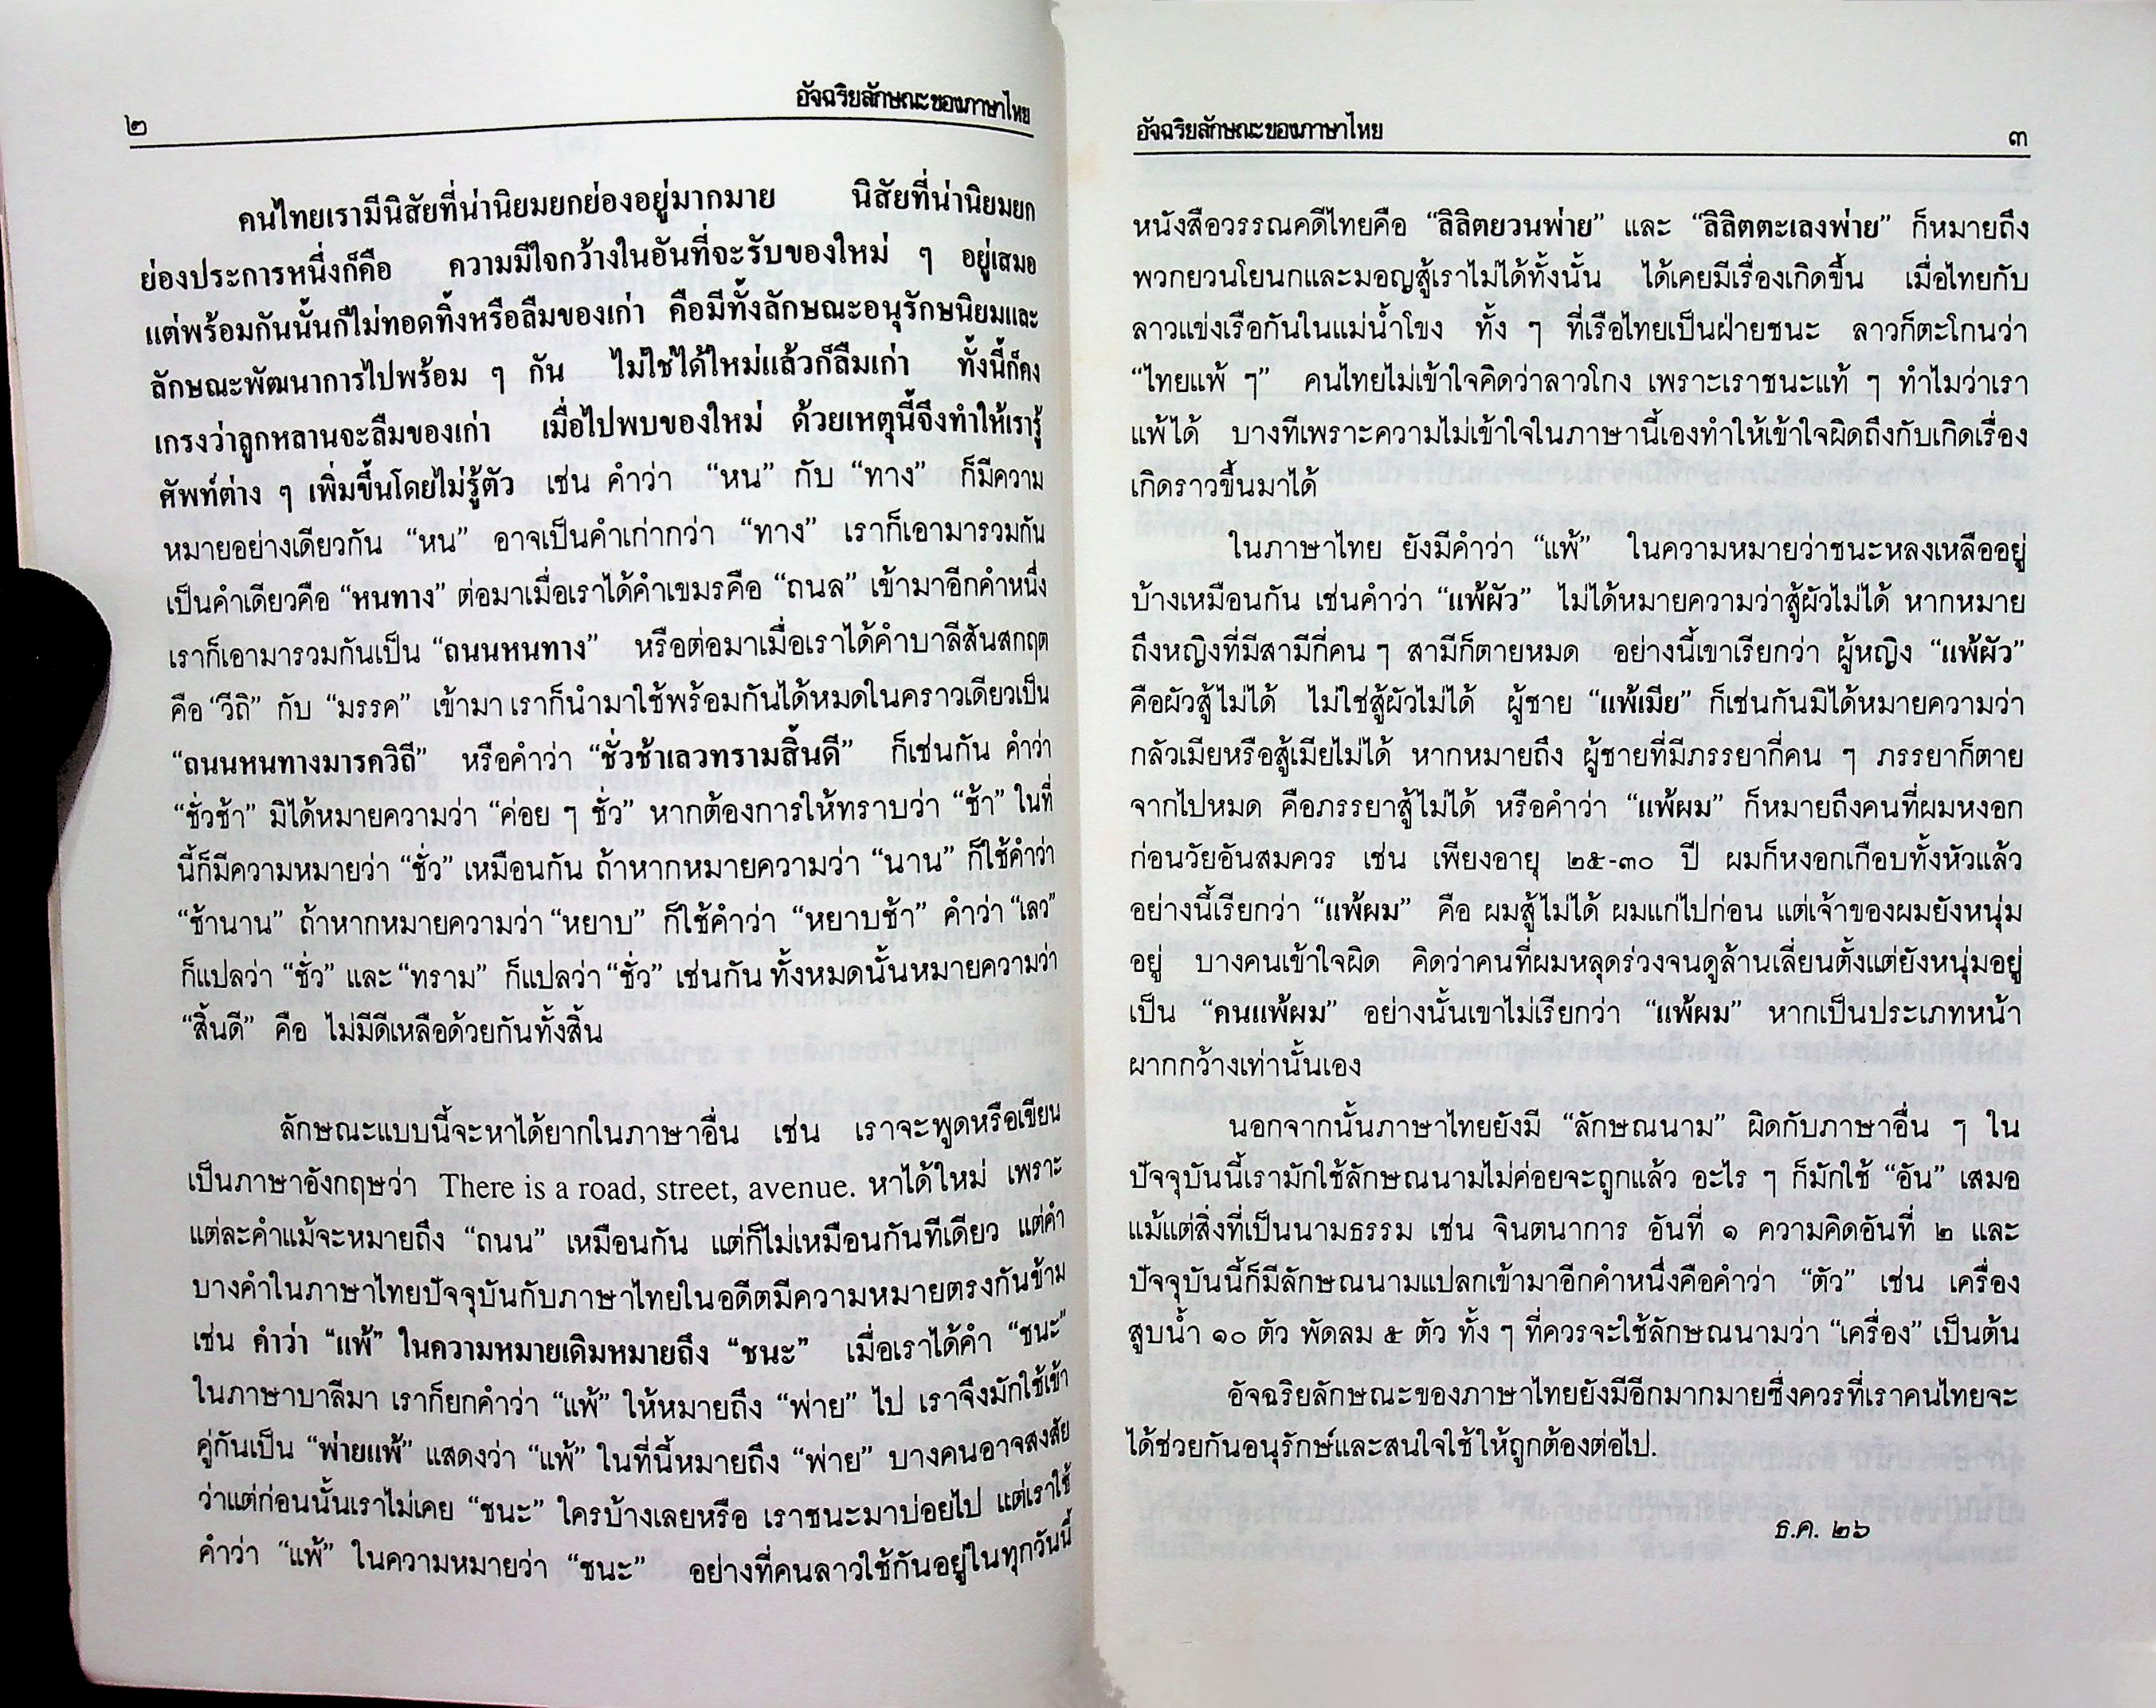 ๒
อัจฉริยลักษณะของภาษาไทย
คนไทยเรามีนิสัยที่น่านิยมยกย่องอยู่มากมาย นิสัยที่น่านิยมยก
ย่องประการหนึ่งก็คือ ความมีใจกว้างในอันที่จะรับของใหม่ ๆ อยู่เสมอ
แต่พร้อมกันนั้นก็ไม่ทอดทิ้งหรือลืมของเก่า คือมีทั้งลักษณะอนุรักษนิยมและ
ลักษณะพัฒนาการไปพร้อม ๆ กัน ไม่ใช่ได้ใหม่แล้วก็ลืมเก่า ทั้งนี้ก็คง
เกรงว่าลูกหลานจะลืมของเก่า เมื่อไปพบของใหม่ ด้วยเหตุนี้จึงทำให้เรารู้
ศัพท์ต่าง ๆ เพิ่มขึ้นโดยไม่รู้ตัว เช่น คำว่า “หน” กับ “ทาง” ก็มีความ
หมายอย่างเดียวกัน “หน” อาจเป็นคำเก่ากว่า “ทาง” เราก็เอามารวมกัน
เป็นคำเดียวคือ “หนทาง” ต่อมาเมื่อเราได้คำเขมรคือ “ถนล” เข้ามาอีกคำหนึ่ง
เราก็เอามารวมกันเป็น “ถนนหนทาง” หรือต่อมาเมื่อเราได้คำบาลีสันสกฤต
คือ “วีถิ” กับ “มรรค” เข้ามา เราก็นำมาใช้พร้อมกันได้หมดในคราวเดียวเป็น
“ถนนหนทางมารควิถี” หรือคำว่า “ชั่วช้าเลวทรามสิ้นดี” ก็เช่นกัน คำว่า
“ชั่วช้า” มิได้หมายความว่า “ค่อย ๆ ชั่ว” หากต้องการให้ทราบว่า “ช้า” ในที่
นี้ก็มีความหมายว่า “ชั่ว” เหมือนกัน ถ้าหากหมายความว่า “นาน” ก็ใช้คำว่า
“ช้านาน” ถ้าหากหมายความว่า “หยาบ” ก็ใช้คำว่า “หยาบช้า” คำว่า “เลว”
ก็แปลว่า “ชั่ว” และ “ทราม” ก็แปลว่า “ชั่ว” เช่นกัน ทั้งหมดนั้นหมายความว่า
“สิ้นดี” คือ ไม่มีดีเหลือด้วยกันทั้งสิ้น
ลักษณะแบบนี้จะหาได้ยากในภาษาอื่น เช่น เราจะพูดหรือเขียน
เป็นภาษาอังกฤษว่า There is a road, street, avenue. หาได้ใหม่ เพราะ
แต่ละคำแม้จะหมายถึง “ถนน” เหมือนกัน แต่ก็ไม่เหมือนกันทีเดียว แต่คำ
บางคำในภาษาไทยปัจจุบันกับภาษาไทยในอดีตมีความหมายตรงกันข้าม
เช่น คำว่า “แพ้” ในความหมายเดิมหมายถึง “ชนะ” เมื่อเราได้คำ “ชนะ”
ในภาษาบาลีมา เราก็ยกคำว่า “แพ้” ให้หมายถึง “พ่าย” ไป เราจึงมักใช้เข้า
คู่กันเป็น “พ่ายแพ้” แสดงว่า “แพ้” ในที่นี้หมายถึง “พ่าย” บางคนอาจสงสัย
ว่าแต่ก่อนนั้นเราไม่เคย “ชนะ” ใครบ้างเลยหรือ เราชนะมาบ่อยไป แต่เราใช้
คำว่า “แพ้” ในความหมายว่า “ชนะ” อย่างที่คนลาวใช้กันอยู่ในทุกวันนี้
อัจฉริยลักษณะของภาษาไทย
๓
หนังสือวรรณคดีไทยคือ “ลิลิตยวนพ่าย” และ “ลิลิตตะเลงพ่าย” ก็หมายถึง
พวกยวนโยนกและมอญสู้เราไม่ได้ทั้งนั้น ได้เคยมีเรื่องเกิดขึ้น เมื่อไทยกับ
ลาวแข่งเรือกันในแม่น้ำโขง ทั้ง ๆ ที่เรือไทยเป็นฝ่ายชนะ ลาวก็ตะโกนว่า
“ไทยแพ้ ๆ” คนไทยไม่เข้าใจคิดว่าลาวโกง เพราะเราชนะแท้ ๆ ทำไมว่าเรา
แพ้ได้ บางทีเพราะความไม่เข้าใจในภาษานี้เองทำให้เข้าใจผิดถึงกับเกิดเรื่อง
เกิดราวขึ้นมาได้
ในภาษาไทย ยังมีคำว่า “แพ้” ในความหมายว่าชนะหลงเหลืออยู่
บ้างเหมือนกัน เช่นคำว่า “แพ้ผัว” ไม่ได้หมายความว่าสู้ผัวไม่ได้ หากหมาย
ถึงหญิงที่มีสามีกี่คน ๆ สามีก็ตายหมด อย่างนี้เขาเรียกว่า ผู้หญิง “แพ้ผัว”
คือผัวสู้ไม่ได้ ไม่ใช่สู้ผัวไม่ได้ ผู้ชาย “แพ้เมีย” ก็เช่นกันมิได้หมายความว่า
กลัวเมียหรือสู้เมียไม่ได้ หากหมายถึง ผู้ชายที่มีภรรยากี่คน ๆ ภรรยาก็ตาย
จากไปหมด คือภรรยาสู้ไม่ได้ หรือคำว่า “แพ้ผม” ก็หมายถึงคนที่ผมหงอก
ก่อนวัยอันสมควร เช่น เพียงอายุ ๒๕-๓๐ ปี ผมก็หงอกเกือบทั้งหัวแล้ว
อย่างนี้เรียกว่า “แพ้ผม” คือ ผมสู้ไม่ได้ ผมแก่ไปก่อน แต่เจ้าของผมยังหนุ่ม
อยู่ บางคนเข้าใจผิด คิดว่าคนที่ผมหลุดร่วงจนดูล้านเลี่ยนตั้งแต่ยังหนุ่มอยู่
เป็น “คนแพ้ผม” อย่างนั้นเขาไม่เรียกว่า “แพ้ผม” หากเป็นประเภทหน้า
ผากกว้างเท่านั้นเอง
นอกจากนั้นภาษาไทยยังมี “ลักษณนาม” ผิดกับภาษาอื่น ๆ ใน
ปัจจุบันนี้เรามักใช้ลักษณนามไม่ค่อยจะถูกแล้ว อะไร ๆ ก็มักใช้ “อัน” เสมอ
แม้แต่สิ่งที่เป็นนามธรรม เช่น จินตนาการ อันที่ ๑ ความคิดอันที่ ๒ และ
ปัจจุบันนี้ก็มีลักษณนามแปลกเข้ามาอีกคำหนึ่งคือคำว่า “ตัว” เช่น เครื่อง
สูบน้ำ ๑๐ ตัว พัดลม ๕ ตัว ทั้ง ๆ ที่ควรจะใช้ลักษณนามว่า “เครื่อง” เป็นต้น
อัจฉริยลักษณะของภาษาไทยยังมีอีกมากมายซึ่งควรที่เราคนไทยจะ
ได้ช่วยกันอนุรักษ์และสนใจใช้ให้ถูกต้องต่อไป.
ธ.ค. ๒๖